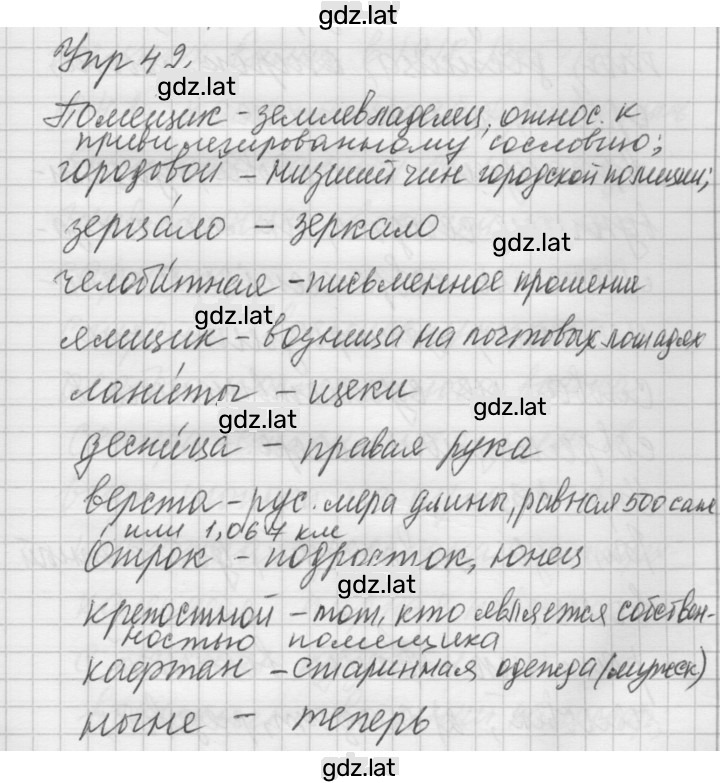 gdz.lat
Упр 49.
gdz.lat
Помещик – землевладелец, относ. к
привилегированному сословию;
городовой – низший чин городской полиции;
зерца́ло – зеркало
gdz.lat
челоби́тная – письменное прошение
gdz.lat
ямщик – возница на почтовых лошадях
лани́ты – щеки
gdz.lat
gdz.lat
десни́ца – правая рука
верста – рус. мера длины, равная 500 саже
или 1,067 км
Отрок – подросток, юнец
gdz.lat
крепостной – тот, кто является собствен-
ностью помещика
кафтан – старинная одежда (мужск)
ныне – теперь
gdz.lat